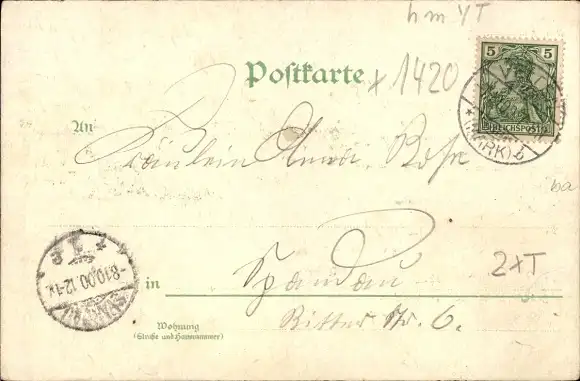 h m YT
5 5
REICHSPOST
(MARK) b
Postkarte
x 1420
An
Fräulein Anna Rose
ba
8.10.00.12-1
SPANDAU
2xT
in Spandau
Ritter Str. 6.
Wohnung
(Straße und Hausnummer)